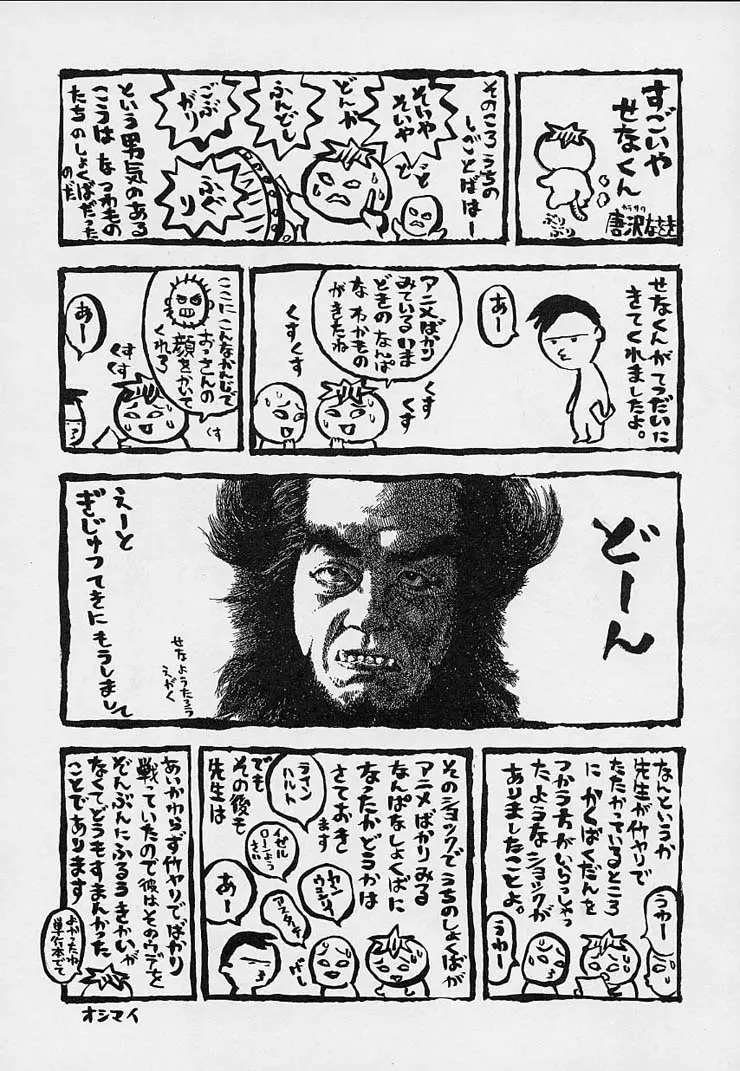 すごいや
せなくん
カラサワ
唐沢なをき
ぷりぷり
そのころうちの
しごとばはー
そいや
そいや
どんが
ふんどし
ごぶ
がり
ふぐ
り
という男気のある
こうはなつわもの
たちのしょくばだった
のだ
せなくんがてつだいに
きてくれましたよ。
あー
アニメばかり
みているいま
どきのなんぱ
なわかもの
がきたね
くす
くす
くすくす
ここにこんなかんじで
おっさんの
顔をかいて
くれろ
くす
くす
くす
あー
どーん
せなようたろう
えがく
えーと
ぎじゅつてきにもうしまして
なんというか
先生が竹ヤリで
たたかっているところ
にかくばくだんを
つかう方がいらっしゃっ
たようなショックが
ありましたことよ。
うわー
うわー
そのショックでうちのしょくばが
アニメばかりみる
なんぱなしょくばに
なったかどうかは
さておきし
ます
でも
その後も
先生は
ライン
ハルト
イゼル
ローンよう
さい
ヤン
ウェンリー
アスターテ
あー
あいかわらず竹ヤリでばかり
戦っていたので彼はそのウデを
ぞんぶんにふるうきかいが
なくてどうもすまんかった
ことであります
よかったね
単行本でて
オシマイ